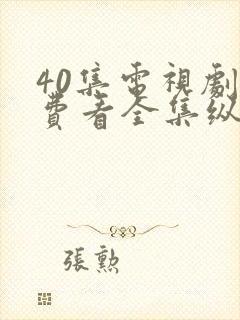 40集電視劇
費看全集纵
張勲